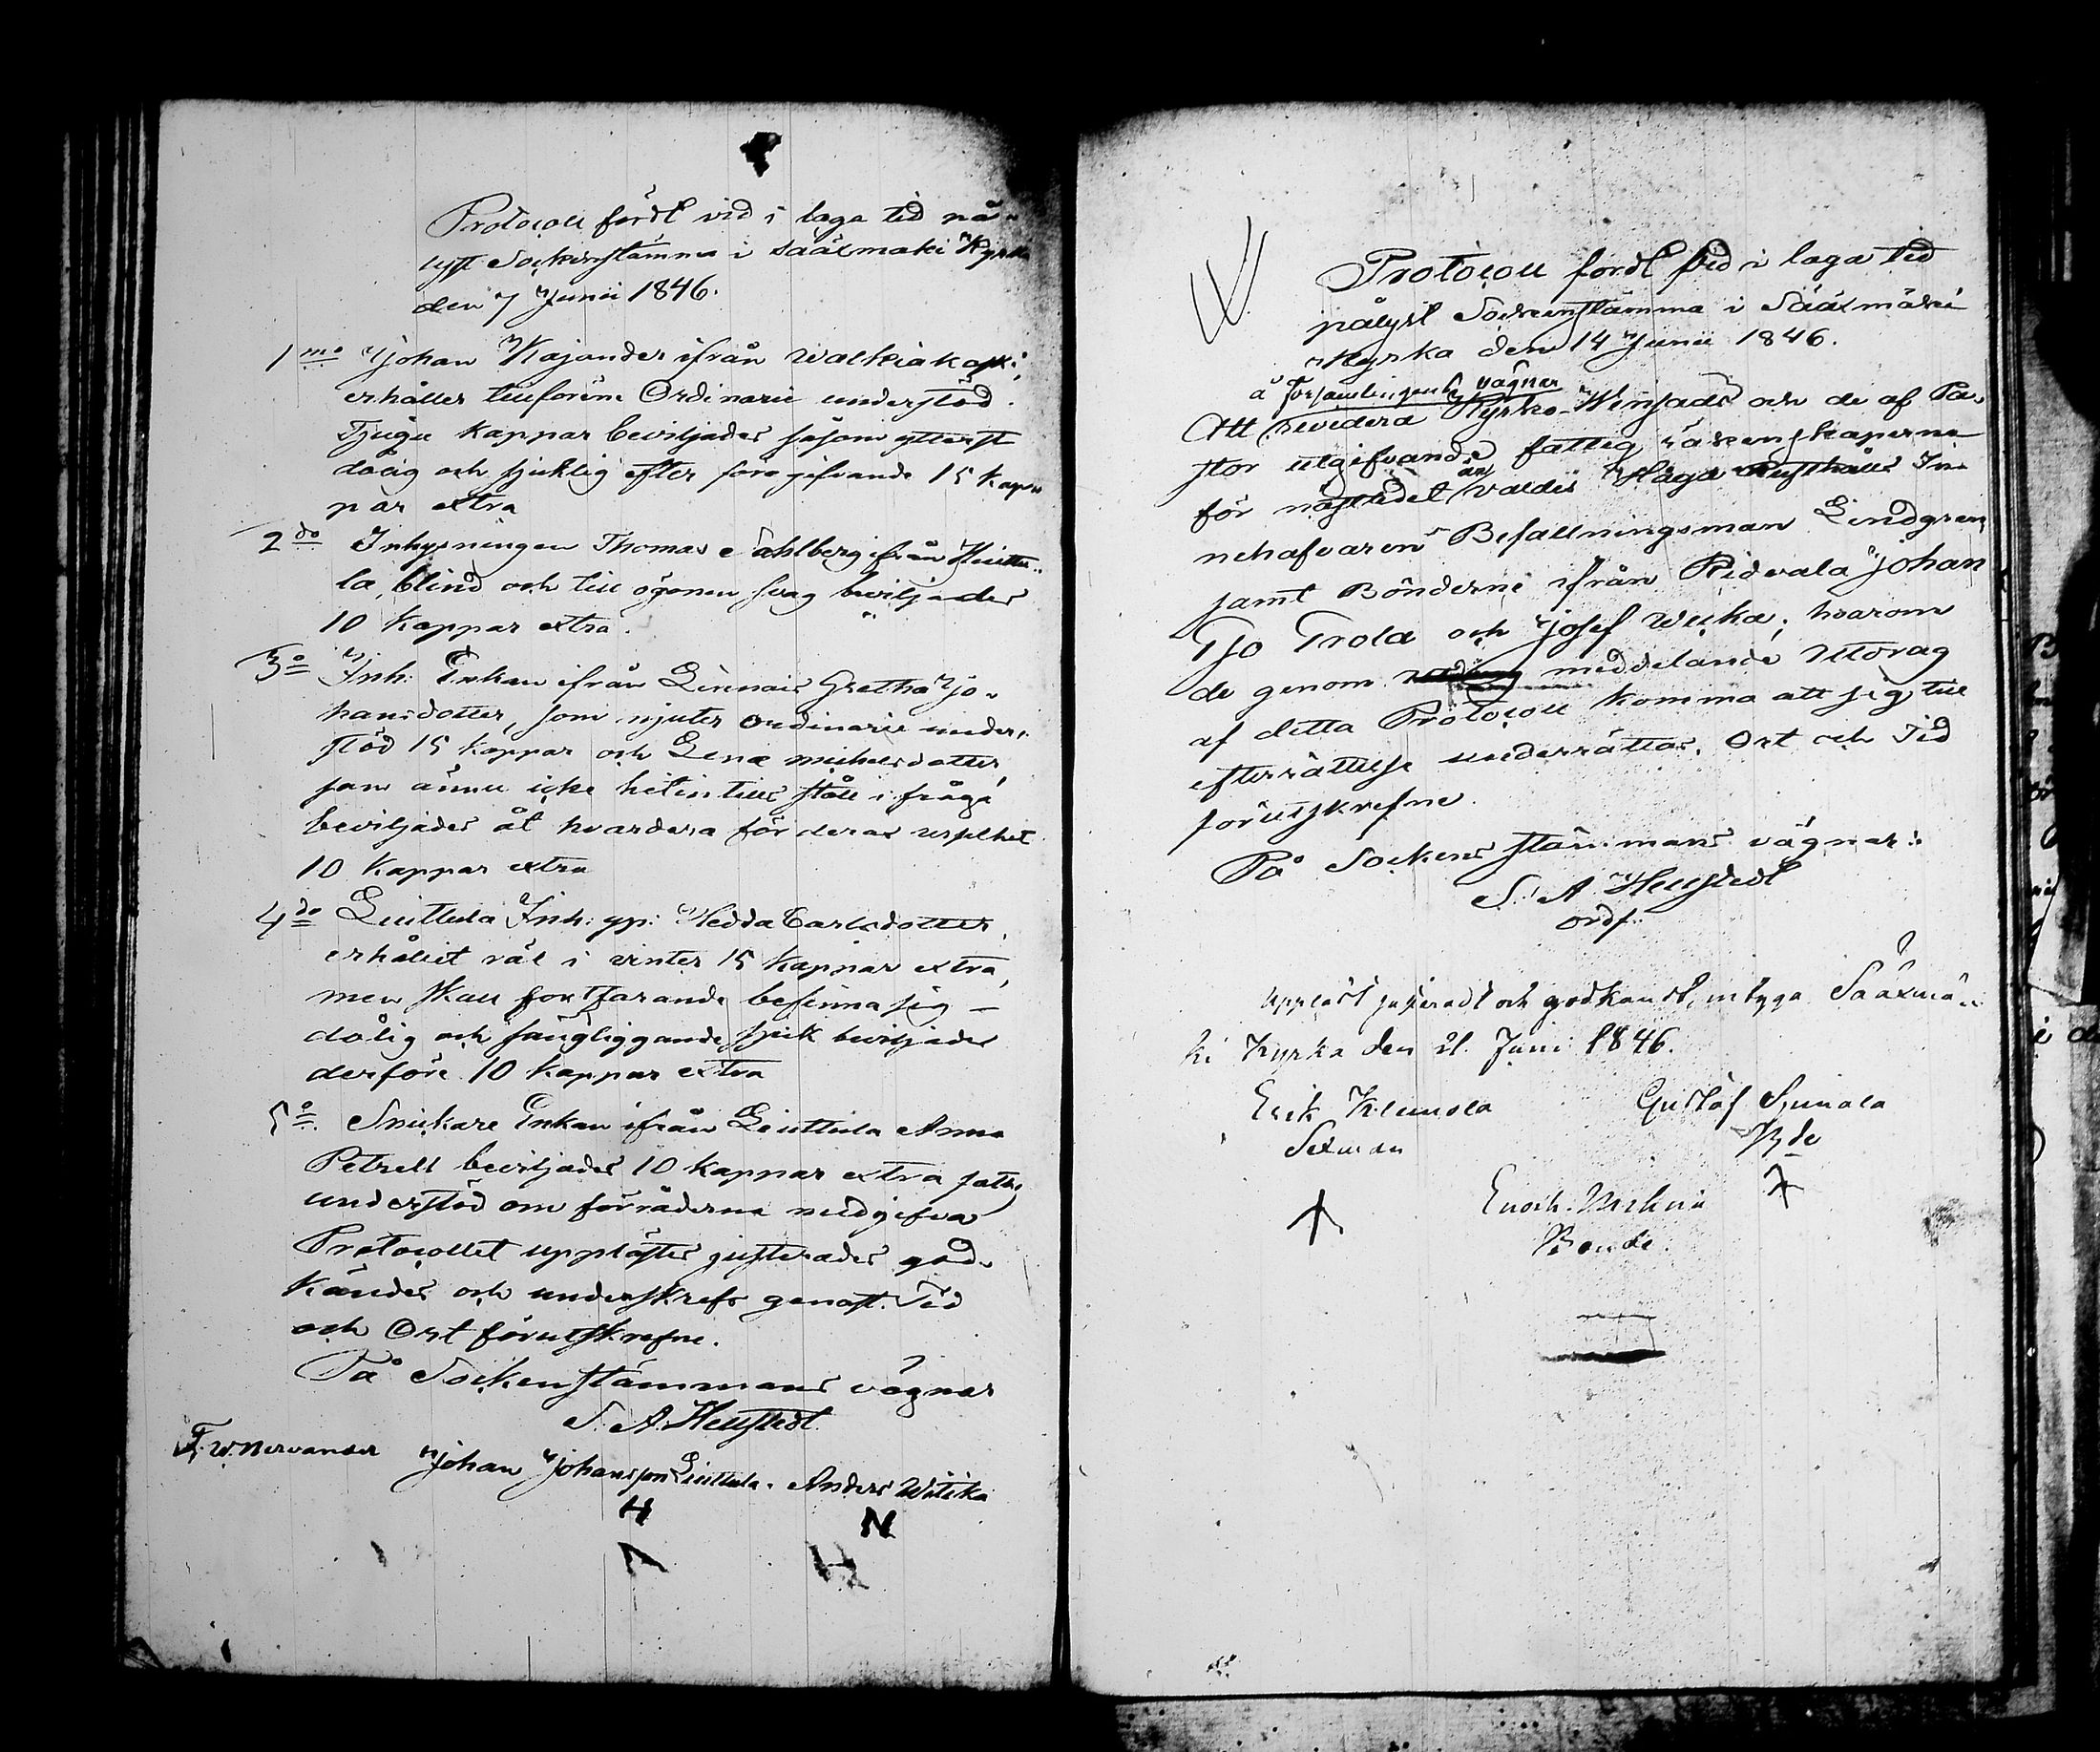 Protocoll fördt vid i laga tid på-
lyst Sockenstämma i Sääxmäki Kyrka
den 7 Junii 1846.
1mo Johan Kajander ifrån Walkiakoski,
erhåller tillförene Ordinarie understöd
Tjugu kappar beviljades såsom ytterst
dålig och sjuklig efter föregifvande 15 kap-
par extra
2do Inhysningen Thomas Sahlberg ifrån Huittu-
la, blind och till ögonen svag beviljades
10 kappar extra.
3o Inh: Enkan ifrån Linnais Gretha Jo-
hansdotter, som njuter ordinarie under-
stöd 15 kappar och Lena Michelsdotter,
som ännu icke hitintills ståll i fråga
beviljades åt hvardera för deras uselhet
10 kappar extra
4do Liuttula Inh: gp: Hedda Carlsdotter,
erhållit väl i vinter 15 kappar extra,
men skall fortfarande befinna sig -
dålig och sängliggande sjuk beviljades
derföre 10 kappar extra
5o. Snickare Enkan ifrån Liuttula Anna
Petrell beviljades 10 kappar extra fattig
understöd om förråderna medgifva
Protocollet upplästes justerades god-
kändes och underskrefs genast. Tid
och Ort förutskrefne.
På Sockenstämmans vägnar
S. A. Hellstedt.
F. W. Nervander Johan Johansson Liuttula. Anders Witika
H N
Protocoll fördt vid i laga tid
pålyst Sockenstämma i Sääxmäki
Kyrka den 14 Junii 1846.
å Församlingens vägnar
Att revidera Kyrko-Winsads och de af Pa-
stor utgifvande fattig räkenskaperna
för nästledet år valdes Haga Rusthålls In-
nehafvaren Befallningsman Lindgren
samt Bönderne ifrån Ridvala Johan
Tjo Trola och Josef Wuka; hvarom
de genom meddelande Utdrag
af detta Protocoll komma att sig till
efterrättelse underrättas. Ort och Tid
förutskrefne.
På Sockenstämmans vägnar:
S. A Hellstedt
ordf.
Uppläst justeradt och godkändt, intyga Sääxmä-
ki Kyrka den 21. Juni 1846.
Erik Klemola Gustaf Spinola
Sexman Bde
Enoch
Bonde